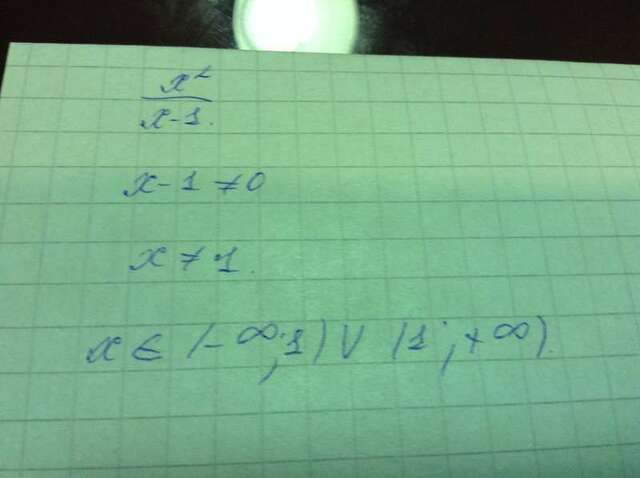 x²/x-1.
x-1 ≠ 0
x ≠ 1.
x ∈ (-∞;1) ∪ (1;+∞).